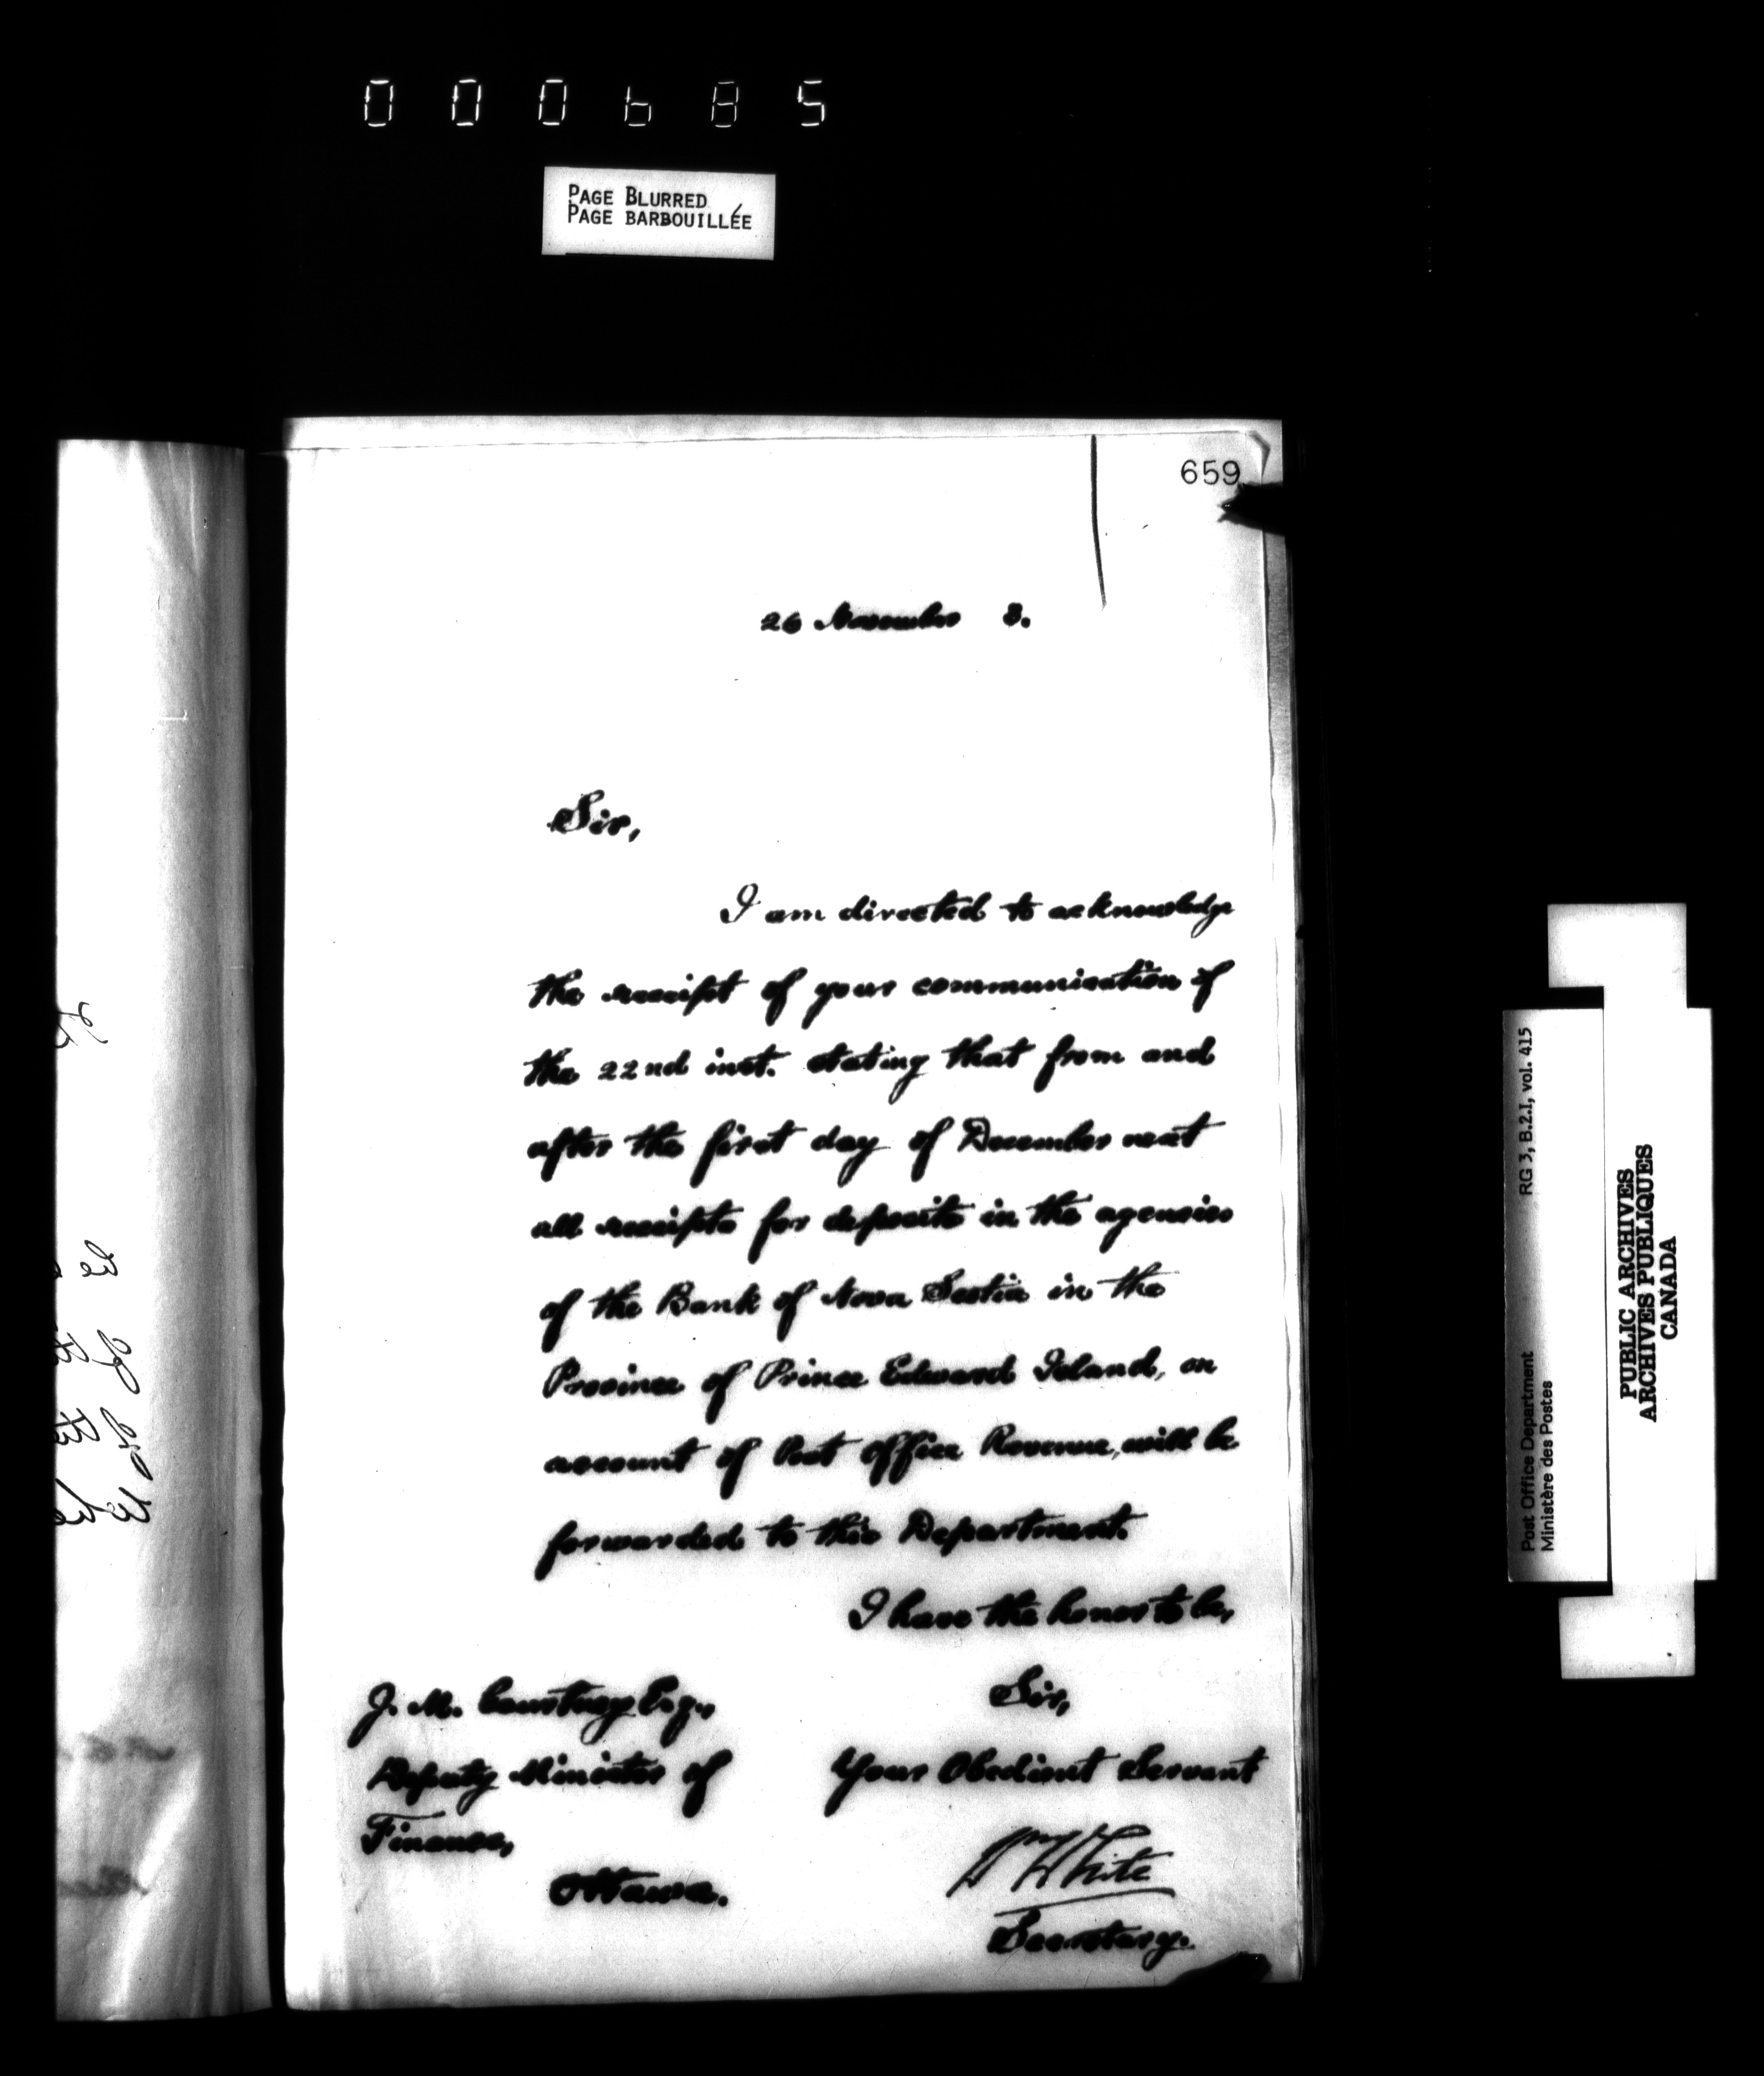 000685
PAGE BLURRED
PAGE BARBOUILLÉE
659
26 November 3.
Sir,
I am directed to acknowledge
the receipt of your communication of
the 22nd inst. stating that from and
after the first day of December next
all receipts for deposits in the agencies
of the Bank of Nova Scotia in the
Province of Prince Edward Island, on
account of Post Office Revenue, will be
forwarded to this Department.
I have the honor to be,
Sir,
Your Obedient Servant
Wm White
Secretary.
J. M. Courtney Esq.,
Deputy Minister of
Finance,
Ottawa.
Post Office Department RG 3, B.2.I, vol. 415
Ministère des Postes
PUBLIC ARCHIVES
ARCHIVES PUBLIQUES
CANADA